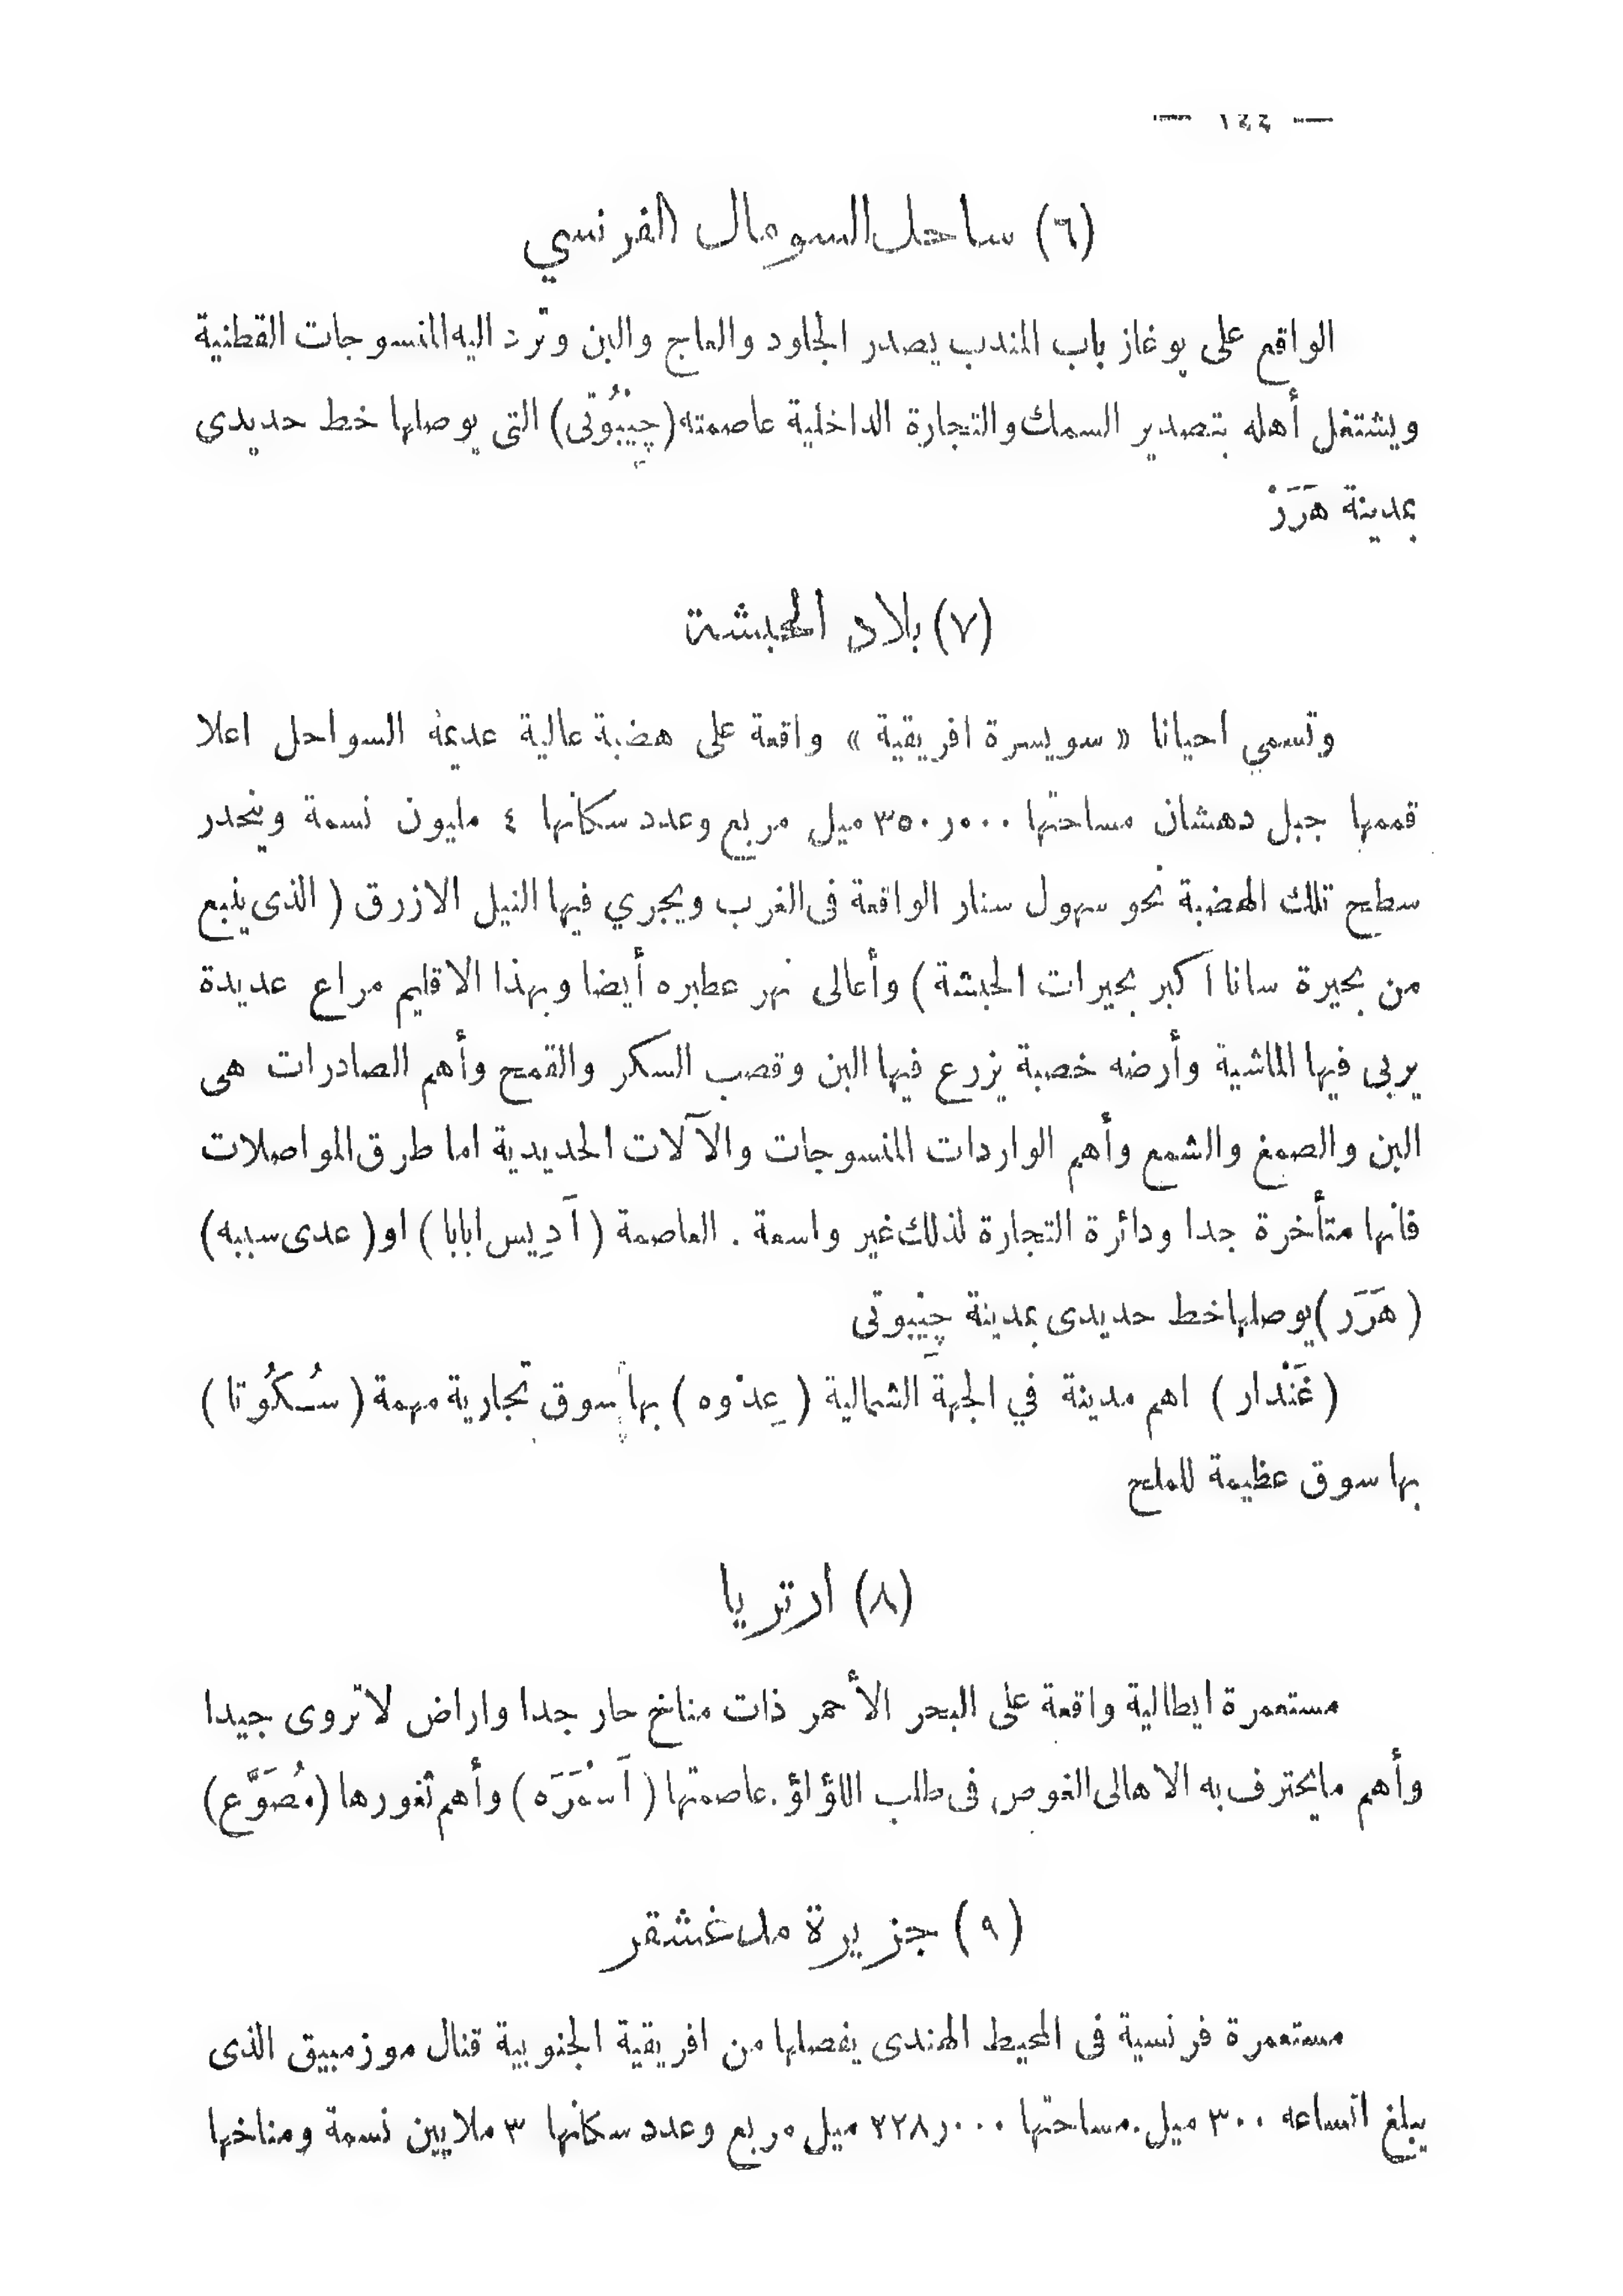 — ١٤٤ —
(٦) ساحل السومال الفرنسي
الواقع على بوغاز باب المندب يصدر الجلود والعاج والبن وترد اليه المنسوجات القطنية
ويشتغل أهله بتصدير السمك والتجارة الداخلية عاصمته (چِيْبُوتى) التى يوصلها خط حديدى
بمدينة هَرَرْ
(٧) بلاد الحبشة
وتسمي احيانا « سويسرة افريقية » واقعة على هضبة عالية عديمة السواحل اعلا
قممها جبل دهشان مساحتها ٣٥٠٫٠٠٠ ميل مربع وعدد سكانها ٤ مليون نسمة وينحدر
سطح تلك الهضبة نحو سهول سنار الواقعة فى الغرب ويجري فيها النيل الازرق ( الذى ينبع
من بحيرة سانا اكبر بحيرات الحبشة ) وأعالى نهر عطبره أيضا وبهذا الاقليم مراع عديدة
يربى فيها الماشية وأرضه خصبة يزرع فيها البن وقصب السكر والقمح وأهم الصادرات هى
البن والصمغ والشمع وأهم الواردات المنسوجات والآلات الحديدية اما طرق المواصلات
فانها متأخرة جدا ودائرة التجارة لذلك غير واسعة . العاصمة ( آدِيس ابابا ) او ( عدى سببه )
( هَرَرَ ) يوصلها خط حديدى بمدينة چِيْبوتى
( غَنْدار ) اهم مدينة في الجهة الشمالية ( عِدْوه ) بها سوق تجارية مهمة ( سُكُوتا )
بها سوق عظيمة للملح
(٨) ارتريا
مستعمرة ايطالية واقعة على البحر الأحمر ذات مناخ حار جدا واراض لا تروى جيدا
وأهم مايحترف به الاهالى الغوص فى طلب اللؤلؤ. عاصمتها ( آسْمَرَه ) وأهم ثغورها (مُصَوَّع)
(٩) جزيرة مدغشقر
مستعمرة فرنسية فى المحيط الهندى يفصلها من افريقية الجنوبية قنال موزمبيق الذى
يبلغ اتساعه ٣٠٠ ميل. مساحتها ٢٢٨٫٠٠٠ ميل مربع وعدد سكانها ٣ ملايين نسمة ومناخها